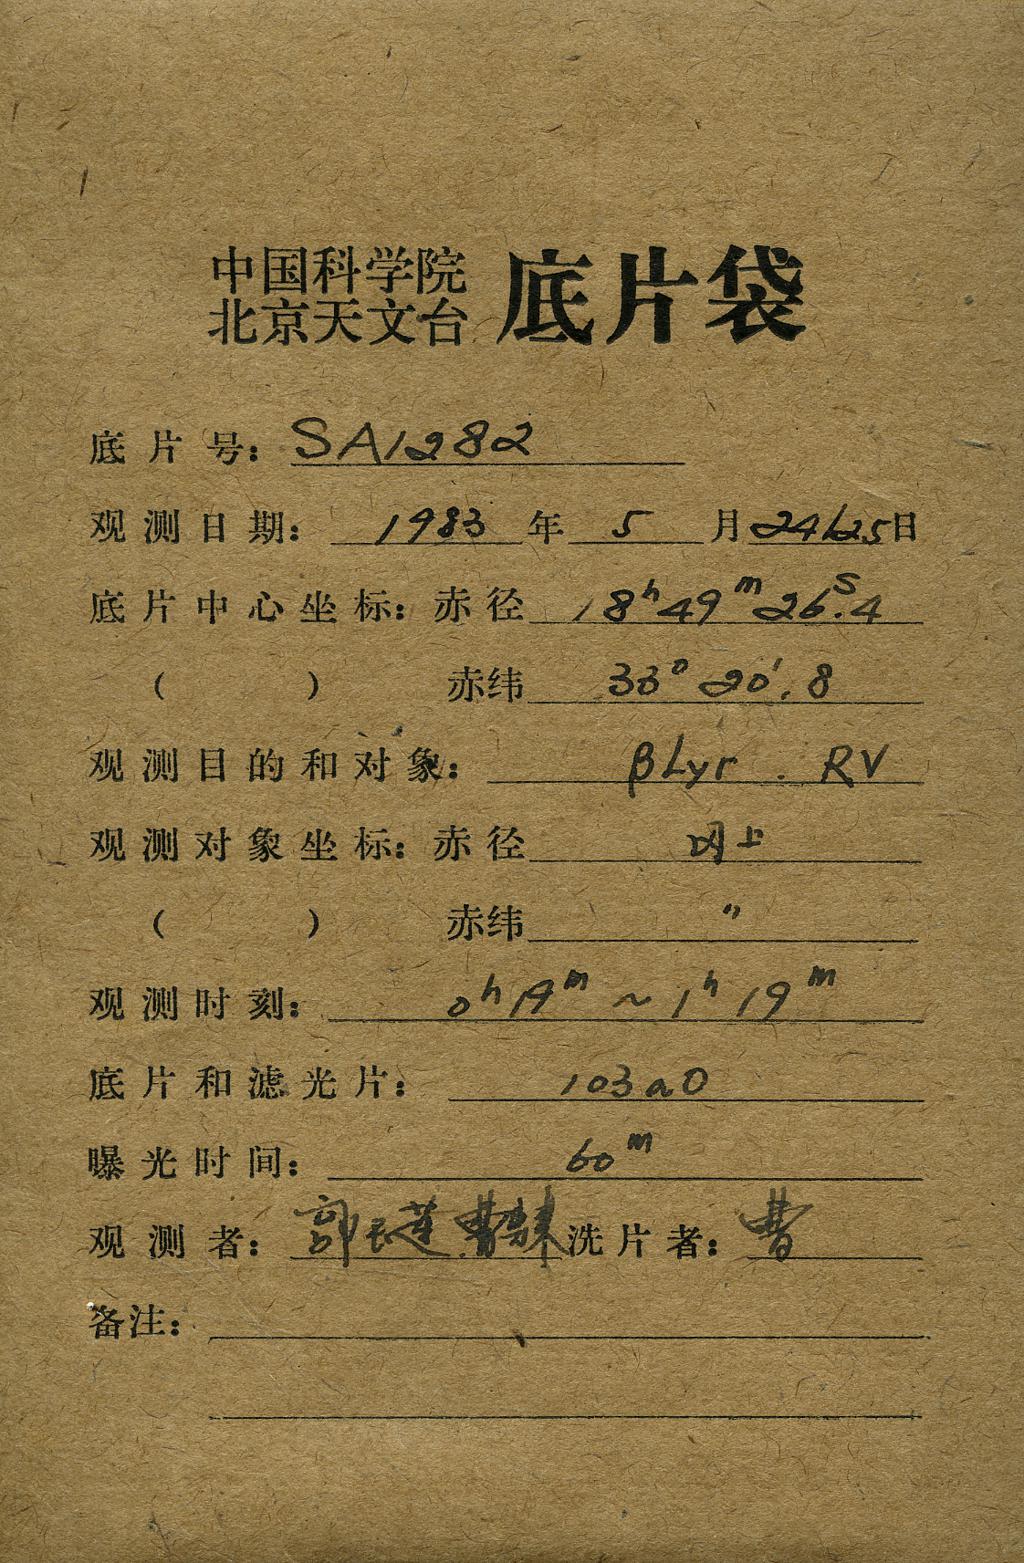 中国科学院
北京天文台
底片袋
底片号：SA1282
观测日期：1983年5月24/25日
底片中心坐标：赤径 18ʰ49ᵐ26ˢ.4
（ ） 赤纬 33°20′.8
观测目的和对象：βLyr . RV
观测对象坐标：赤径 同上
（ ） 赤纬 〃
观测时刻：0ʰ19ᵐ ~ 1ʰ19ᵐ
底片和滤光片：103aO
曝光时间：60ᵐ
观测者：郭 莲 曹 洗片者：曹
备注：